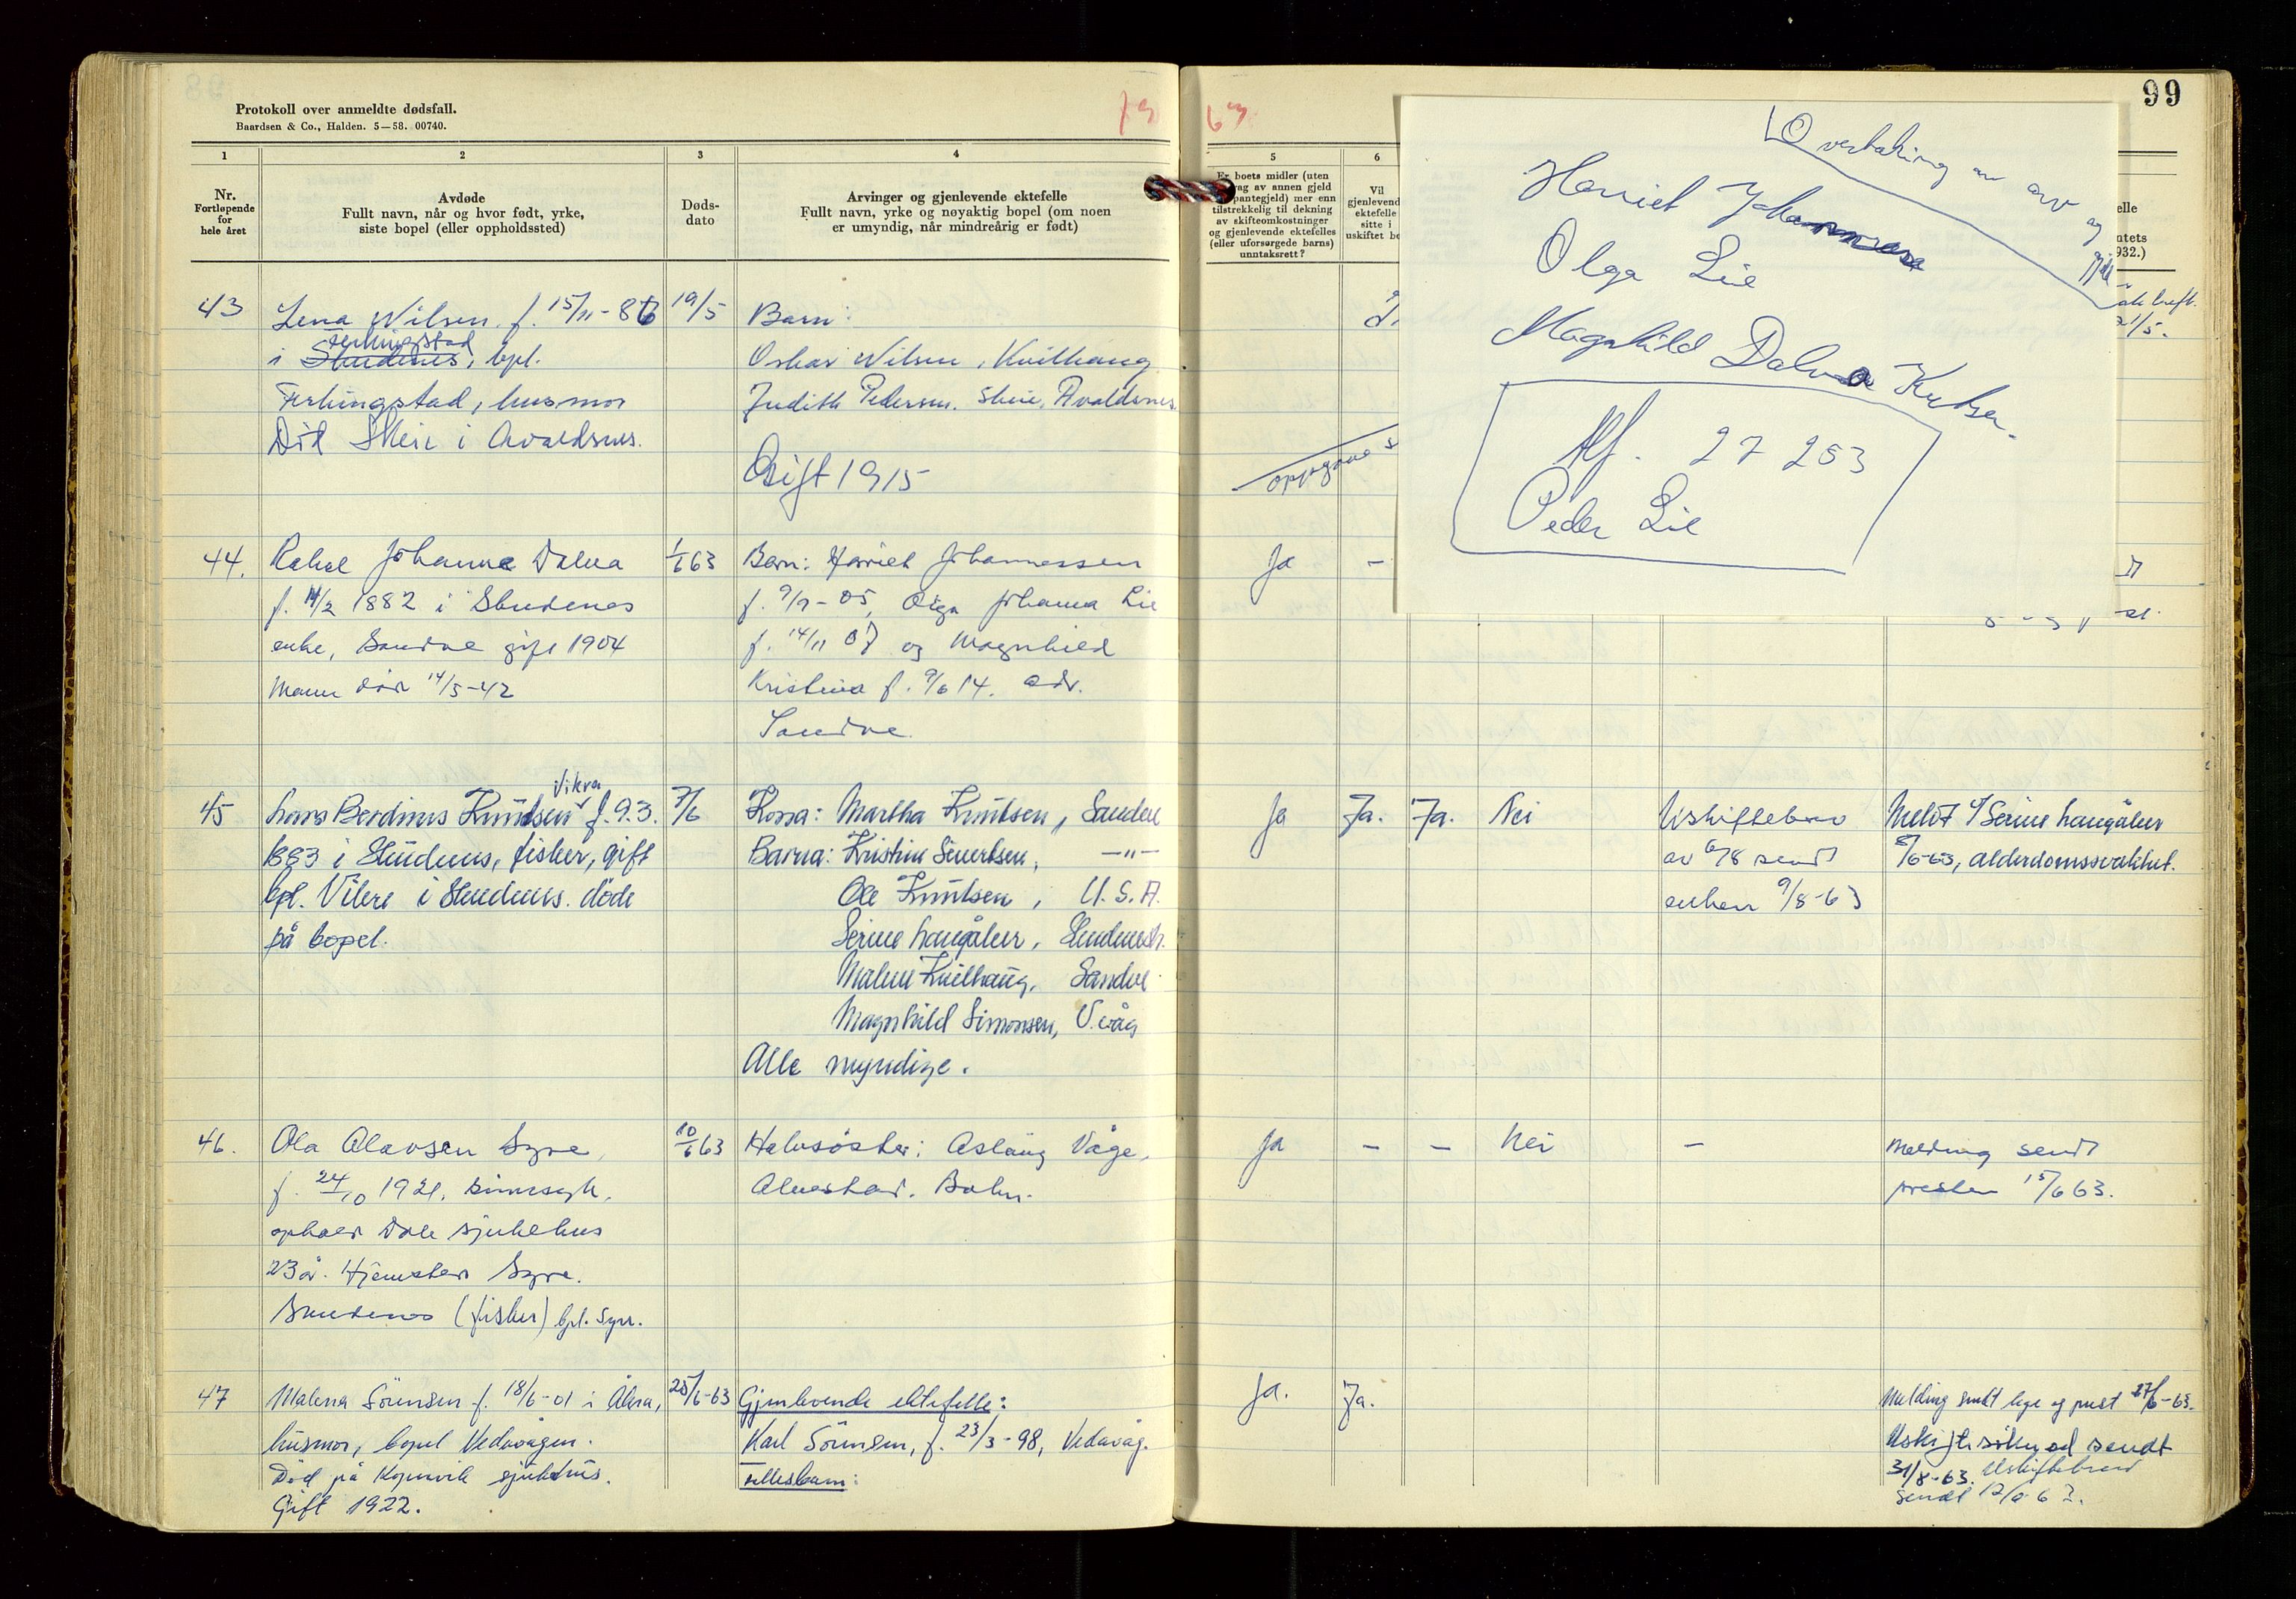 Protokoll over anmeldte dødsfall.
Baardsen & Co., Halden. 5—58. 00740.
19
63
99
1
2
3
4
Nr.
Fortløpende
for
hele året
Avdøde
Fullt navn, når og hvor født, yrke,
siste bopel (eller oppholdssted)
Døds-
dato
Arvinger og gjenlevende ektefelle
Fullt navn, yrke og nøyaktig bopel (om noen
er umyndig, når mindreårig er født)
43
Lena Nilsen, f. 15/11-86
Ferkingstad
i Skudenes, bpl.
Ferkingstad, husmor
Død Skeie i Avaldsnes.
19/5
Barn:
Oskar Nilsen, Kvilhaug
Judith Pedersen. Skeie, Avaldsnes.
Gift 1915
44.
Rakel Johanne Dalva
f. 14/2 1882 i Skudenes
enke, Sandve gift 1904
Mann død 14/5-42
1/6 63
Barn: Harriet Johannessen
f. 9/9-05, Olga Johanna Lie
f. 14/11 07 og Magnhild
Kristina f. 9/6 14. adr.
Sandve.
45
Vikra
Lars Berdines Knutsen f. 9.3.
1883 i Skudenes, fisker, gift
bpl. Vikre i Skudenes. døde
på bopel.
7/6
Kona: Martha Knutsen, Sandve
Barna: Kristine Sivertsen, —"—
Ole Knutsen, U.S.A.
Serine Langåker, Skudenesh.
Malene Kvilhaug, Sandve
Magnhild Simonsen, V.våg
Alle myndige.
46.
Ola Olavsen Syre,
f. 24/10 1921. sinnsyk,
ophold Dale sjukehus
23 år. Hjemsted Syre.
Skudenes (fisker) bpl. Syre.
10/6 63
Halvsøster: Aslaug Våge,
Alvestad. Bokn.
47
Malena Sørensen f. 18/6-01 i Åkra,
husmor, bopel Vedavågen.
Død på Kopervik sjukehus.
Gift 1922.
25/6-63
Gjenlevende ektefelle:
Karl Sørensen, f. 23/3-98, Vedavåg.
Fellesbarn:
5
6
Er boets midler (uten
ag av annen gjeld
pantegjeld) mer enn
tilstrekkelig til dekning
av skifteomkostninger
og gjenlevende ektefelles
(eller uforsørgede barns)
unntaksrett?
Vil
gjenlevend
ektefelle
sitte i
uskiftet be
elle
ntets
932.)
Overtaking av arv og
gjeld
Harriet Johannessen
Olga Lie
Magnhild Dalva Knutsen.
Alf. 27 253
Peder Lie
oppgave s
1/5.
Ja
–
Ja
Ja.
Ja.
Nei
Uskiftebrev
av 6/8 sendt
enken 9/8-63
Meldt v/Serine Langåker
8/6-63, alderdomssvakhet.
Ja
–
–
Nei
–
Melding sendt
presten 15/6 63.
Ja.
Ja.
Melding sendt lege og prest 27/6-63.
Uskiftesøknad sendt
31/8-63. Uskiftebrev
sendt 12/9 63.